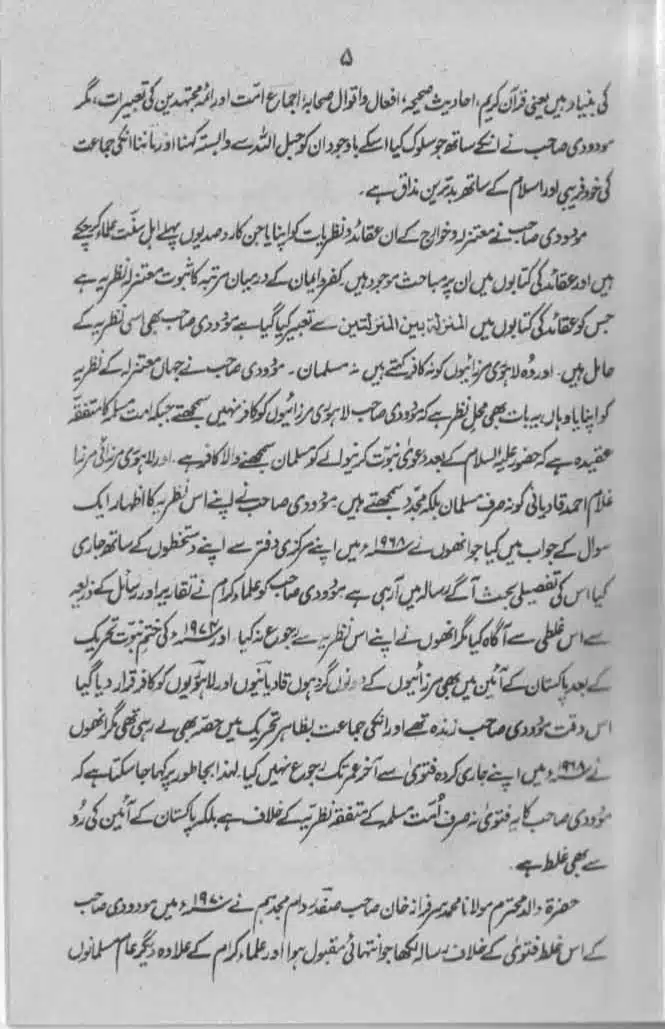 ۵
کی بنیاد ہیں یعنی قرآن کریم، احادیث صحیحہ، افعال و اقوال صحابہؓ، اجماع امت اور ائمہ مجتہدین کی تعبیرات، مگر
مودودی صاحب نے انکے ساتھ جو سلوک کیا اسکے باوجود ان کو حبل اللہ سے وابستہ کہنا اور ماننا انکی جماعت
کی خود فریبی اور اسلام کے ساتھ بدترین مذاق ہے۔
مودودی صاحب نے معتزلہ و خوارج کے ان عقائد و نظریات کو اپنایا جن کا رد صدیوں پہلے اہل سنّت علماء کرچکے
ہیں اور عقائد کی کتابوں میں ان پر مباحث موجود ہیں۔ کفر و ایمان کے درمیان مرتبہ کا ثبوت معتزلہ کا نظریہ ہے
جس کو عقائد کی کتابوں میں المنزلۃ بین المنزلتین سے تعبیر کیا گیا ہے مودودی صاحب بھی اسی نظریہ کے
حامل ہیں۔ اور وہ لاہوری مرزائیوں کو نہ کافر کہتے ہیں نہ مسلمان۔ مودودی صاحب نے جہاں معتزلہ کے نظریہ
کو اپنایا وہاں یہ بات بھی محل نظر ہے کہ مودودی صاحب لاہوری مرزائیوں کو کافر نہیں سمجھتے جبکہ امت مسلمہ کا متفقہ
عقیدہ ہے کہ حضور علیہ السلام کے بعد دعویٰ نبوت کرنیوالے کو مسلمان سمجھنے والا کافر ہے۔ اور لاہوری مرزائی مرزا
غلام احمد قادیانی کو نہ صرف مسلمان بلکہ مجدّد سمجھتے ہیں۔ مودودی صاحب نے اپنے اس نظریہ کا اظہار ایک
سوال کے جواب میں کیا جو انھوں نے ۱۹۶۸ء میں اپنے مرکزی دفتر سے اپنے دستخطوں کے ساتھ جاری
کیا اس کی تفصیلی بحث آگے رسالہ میں آرہی ہے مودودی صاحب کو علماء کرام نے تقاریر اور رسائل کے ذریعہ
سے اس غلطی سے آگاہ کیا مگر انھوں نے اپنے اس نظریہ سے رجوع نہ کیا۔ اور ۱۹۷۴ء کی ختم نبوت تحریک
کے بعد پاکستان کے آئین میں بھی مرزائیوں کے دونوں گروہوں قادیانیوں اور لاہوریوں کو کافر قرار دیا گیا
اس وقت مودودی صاحب زندہ تھے اور انکی جماعت بظاہر تحریک میں حصّہ بھی لے رہی تھی مگر انھوں
نے ۱۹۶۸ء میں اپنے جاری کردہ فتویٰ سے آخر عمر تک رجوع نہیں کیا۔ لہذا بجا طور پر کہا جا سکتا ہے کہ
مودودی صاحب کا یہ فتویٰ نہ صرف اُمّت مسلمہ کے متفقہ نظریہ کے خلاف ہے بلکہ پاکستان کے آئین کی رُو
سے بھی غلط ہے۔
حضرۃ والد محترم مولانا محمد سرفراز خان صاحب صفدر دام مجدہم نے ۱۹۷۰ء میں مودودی صاحب
کے اس غلط فتویٰ کے خلاف رسالہ لکھا جو انتہائی مقبول ہوا اور علماء کرام کے علاوہ دیگر عام مسلمانوں